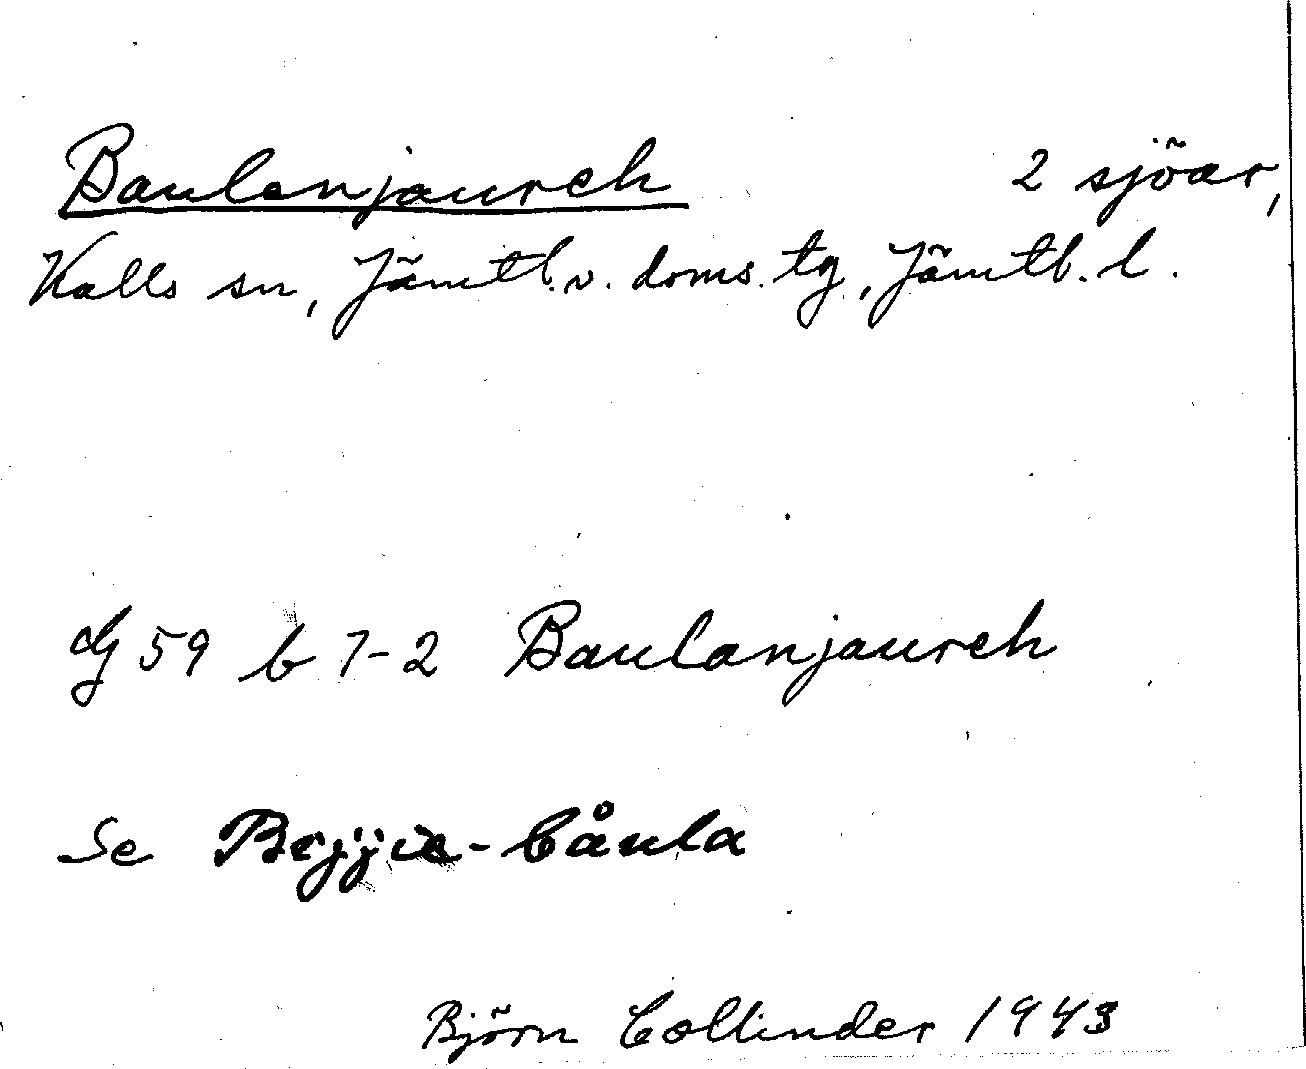 Baulanjaureh 2 sjöar,
Kalls sn, Jämtl.v. doms. tg, Jämtl. l.
59 b 1-2 Baulanjaureh
Se Bijjie-Cåula
Björn Collinder 1943